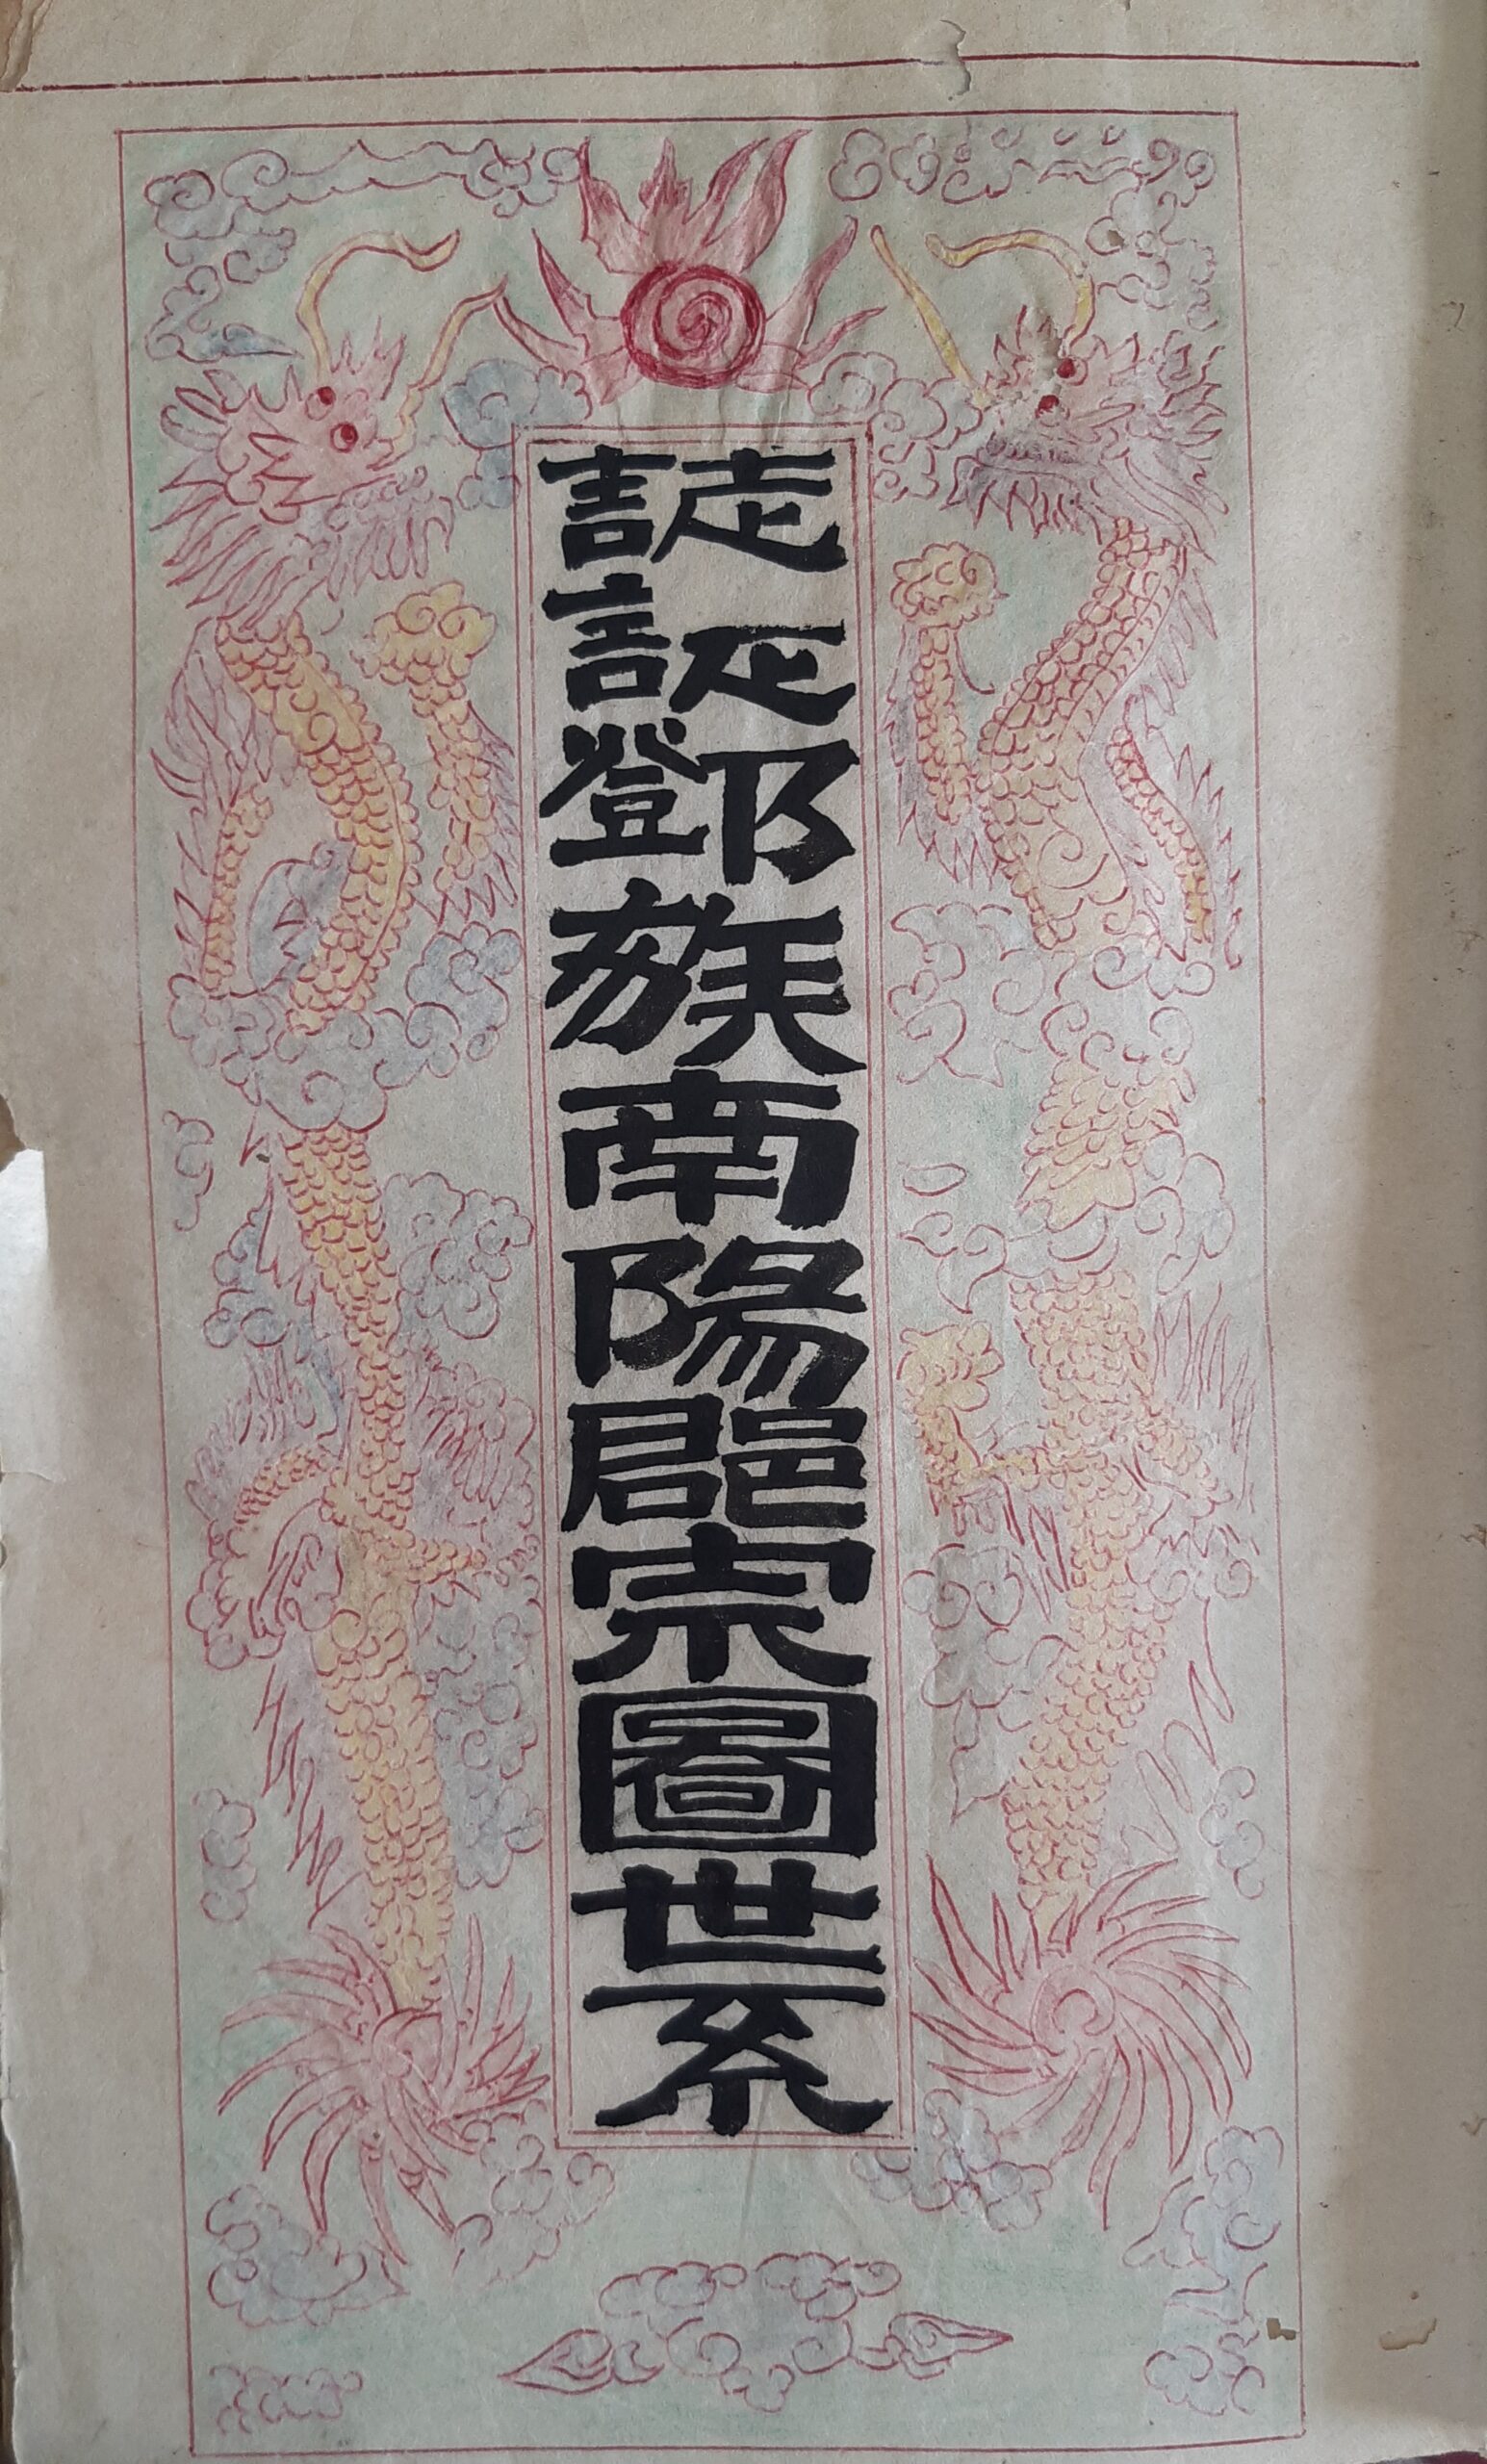 証鄧族南陽郡宗圖世系